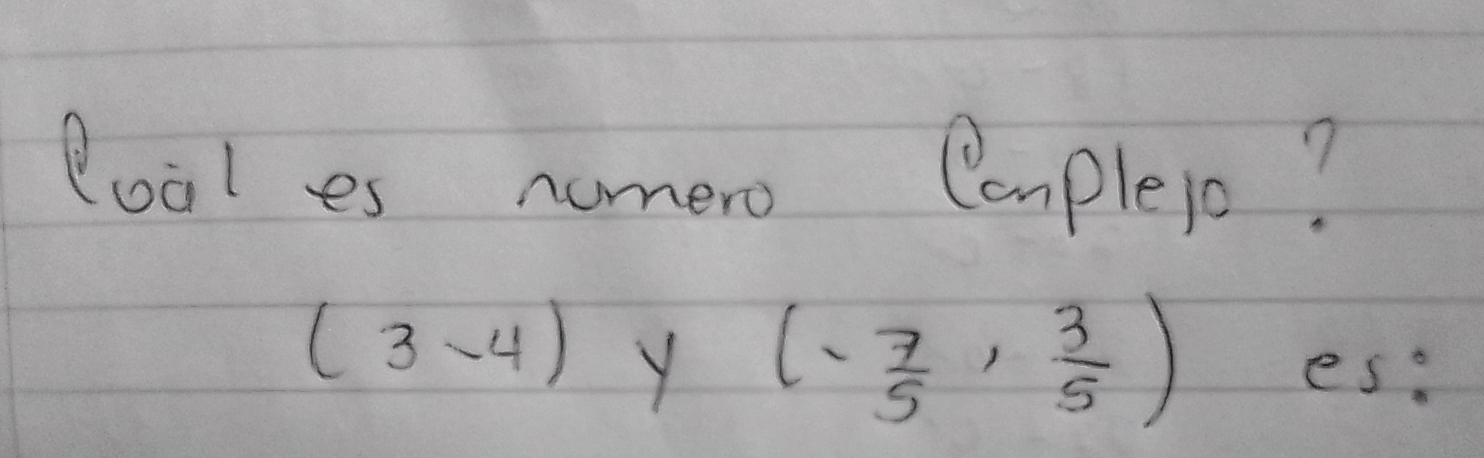 Cuál es numero Complejo?
(3-4) y (-7/5, 3/5) es: